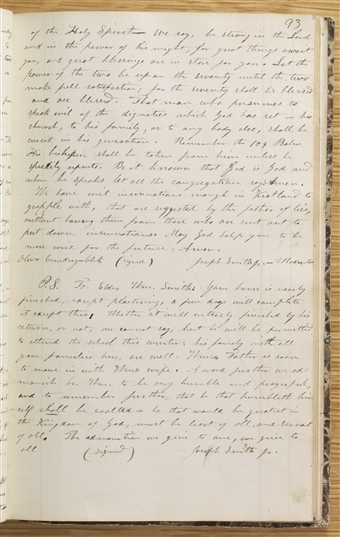 93
of the Holy Spirit— We say, be strong in the Lord,
and in the power of his might, for great things await
you, and great blessings are in store for you. Let the
power of the two be upon the seventy until the two
make full satisfaction, for the seventy shall be blessed
and are blessed. That man who presumes to
speak evil of the dignities which God has set in his
church, to his family, or to any body else, shall be
cursed in his generation. Remember the 109 Psalm.
His bishopric shall be taken from him unless he
speedily repents. Be it known that God is God and
when he speaks let all the congregation say Amen.
We have evil insinuations enough in Kirtland to
grapple with, that are suggested by the father of lies,
without having them from those who are sent out to
put down insinuations. May God help you to be
more wise for the future, Amen.
Oliver (signed) Joseph Smith jr
P.S. To Elder Wm. Smith. Your house is nearly
finished, except plastering, a few days will complete
it except this, Whether it will entirely finished by his
return, or not, we cannot say; but he will be permitted
to attend the school this winter: his family with all
your families here, are well. Father is soon
to move in with wife. A word further we ad-
monish br. Wm. to be very humble and prayerful,
and to remember further, that he that humbleth him
self shall be exalted— he that would be greatest in
the Kingdom of God, must be least of all, and servant
of all. The admonition we give to one, we give to
all (signed) Joseph Smith jr.